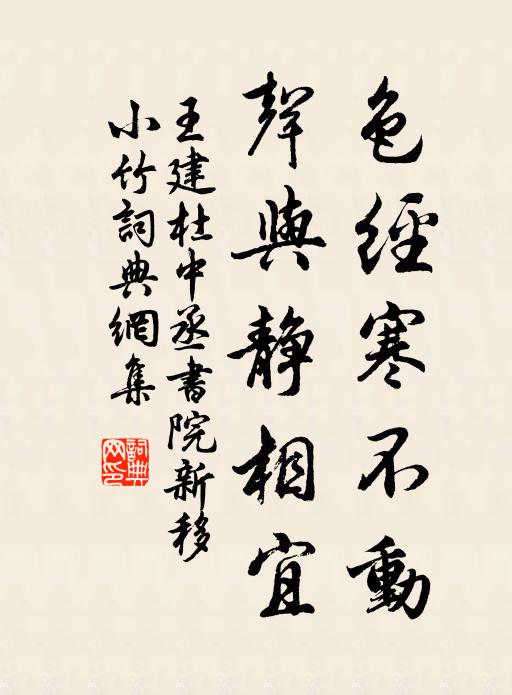 色經寒不動
聲與靜相宜
王建杜中丞書院新移
小竹詞典網集
詞典
网印